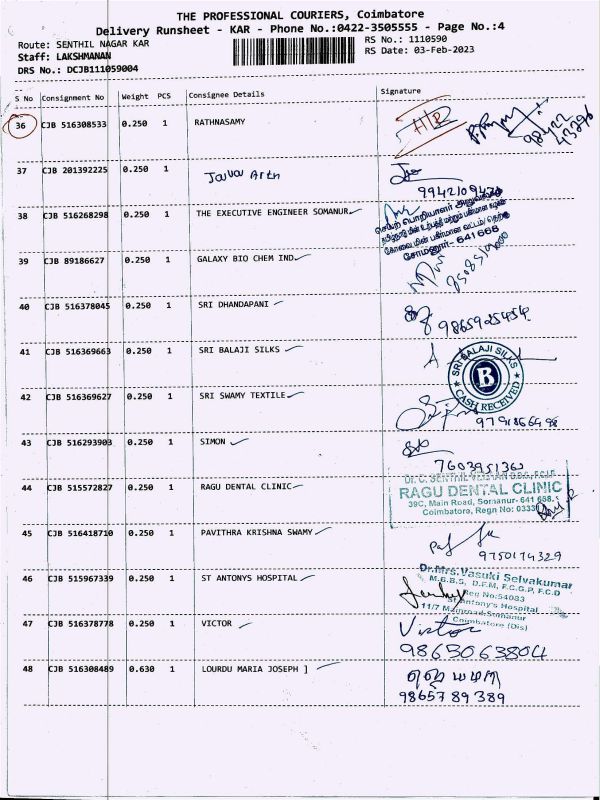 THE PROFESSIONAL COURIERS, Coimbatore
Delivery Runsheet - KAR - Phone No.:0422-3505555 - Page No.:4
Route: SENTHIL NAGAR KAR
RS No.: 1110590
Staff: LAKSHMANAN
RS Date: 03-Feb-2023
DRS No.: DCJB111059004
S No Consignment No Weight PCS Consignee Details Signature
36 CJB 516308533 0.250 1 RATHNASAMY
98422
43296
37 CJB 201392225 0.250 1
38 CJB 516268298 0.250 1 THE EXECUTIVE ENGINEER SOMANUR
சோமனூர் - 641 668
39 CJB 89186627 0.250 1 GALAXY BIO CHEM IND
40 CJB 516378045 0.250 1 SRI DHANDAPANI
9865925454
41 CJB 516369663 0.250 1 SRI BALAJI SILKS
SRI BALAJI SILKS
B
CASH RECEIVED
42 CJB 516369627 0.250 1 SRI SWAMY TEXTILE
43 CJB 516293903 0.250 1 SIMON
7603951360
44 CJB 515572827 0.250 1 RAGU DENTAL CLINIC
RAGU DENTAL CLINIC
39C, Main Road, Somanur- 641 668.
Coimbatore, Regn No:
45 CJB 516418710 0.250 1 PAVITHRA KRISHNA SWAMY
9750174329
46 CJB 515967339 0.250 1 ST ANTONYS HOSPITAL
Dr.Mrs.Vasuki Selvakumar
M.B.B.S, D.F.M, F.C.G.P, F.C.D
Reg No:54083
St Antony's Hospital
11/7 Mainroad Somanur
Coimbatore (Dis)
47 CJB 516378778 0.250 1 VICTOR
Victor
9863063804
48 CJB 516308489 0.630 1 LOURDU MARIA JOSEPH ]
9865789389